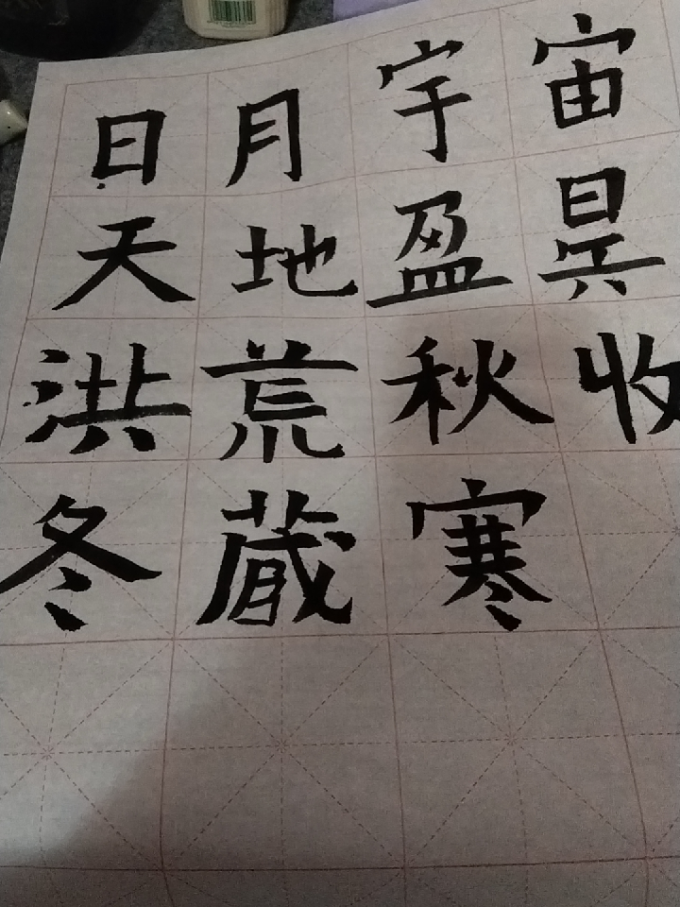 日月宇宙
天地盈昃
洪荒秋收
冬藏寒